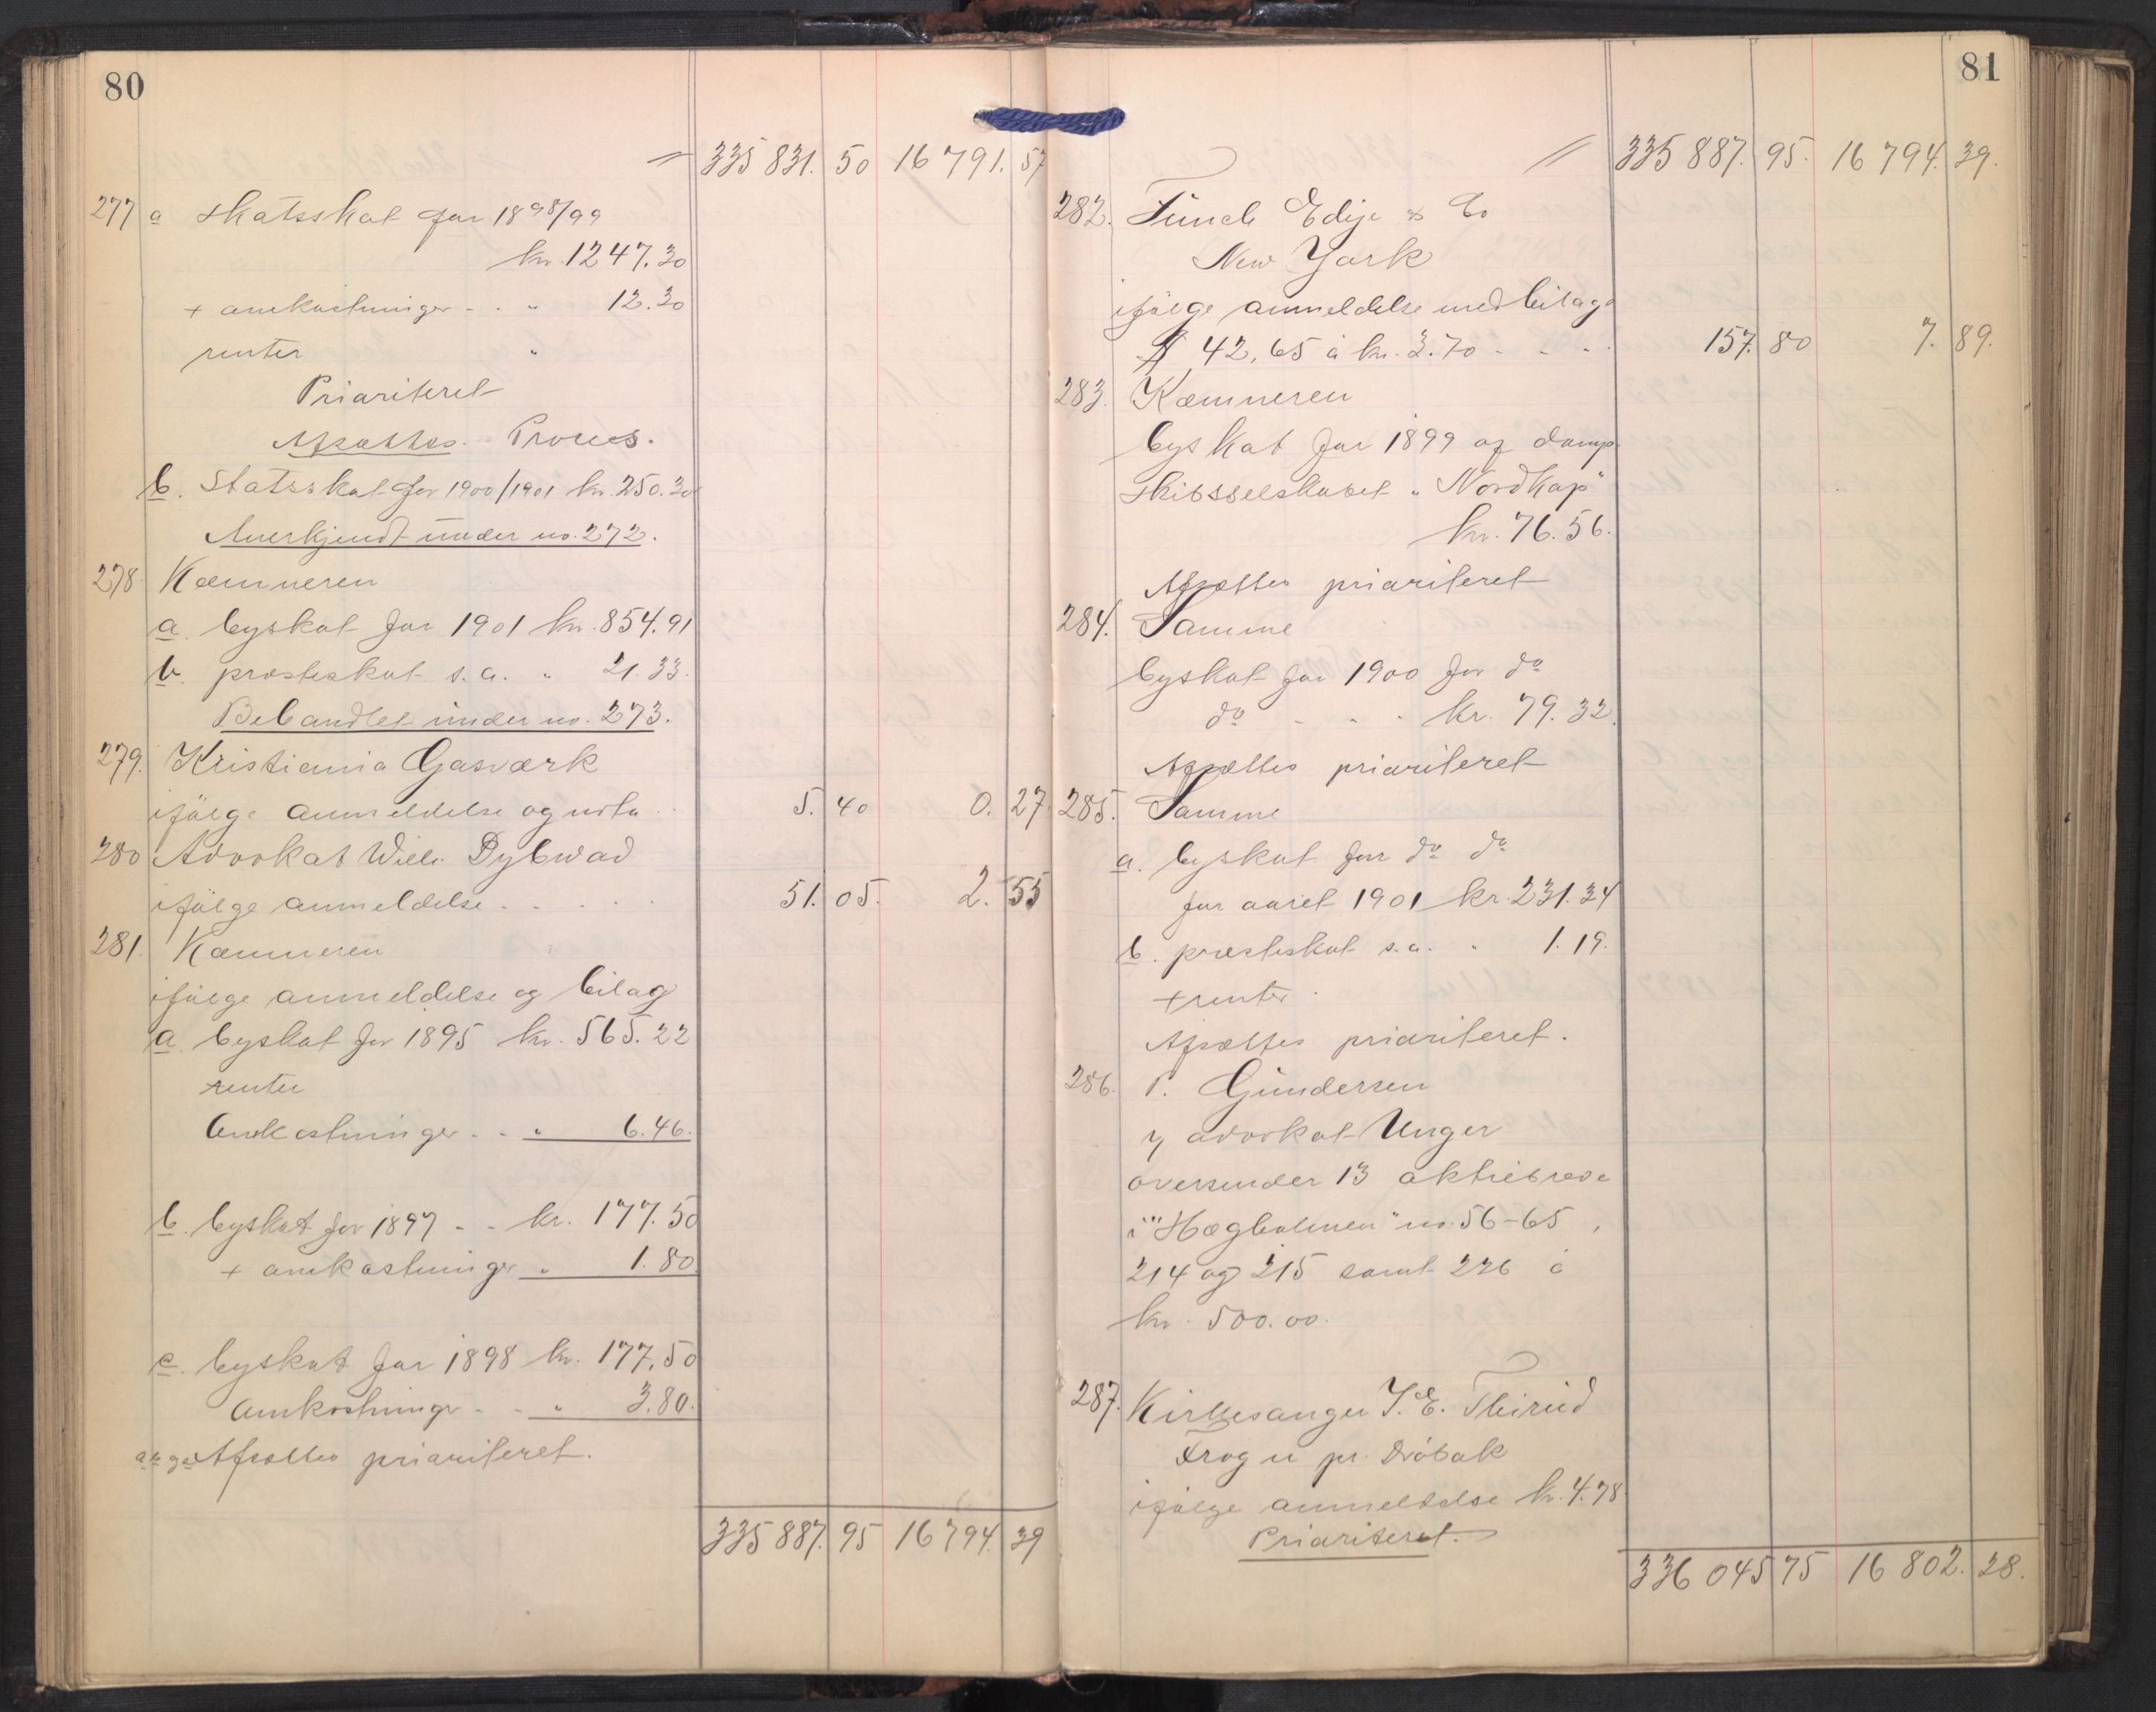 80
335 831. 50 16 791. 57
277 a Statsskat for 1898/99
kr. 1247.30
+ omkostninger - . " 12.30
renter "
Prioriteret
Afsættes. Proces.
b. Statsskat for 1900/1901 kr. 250.30
Anerkjendt under no. 272.
278. Kæmneren
a. byskat for 1901 kr. 854.91
b. presteskat s. a. " 21.33.
Behandlet under no. 273.
279. Kristiania Gasværk
ifølge anmeldelse og nota . . 5. 40 0. 27
280 Advokat Willi. Dybwad
ifølge anmeldelse . . . . . 51. 05. 2. 55
281. Kæmneren
ifølge anmeldelse og bilag
a. byskat for 1895 kr. 565.22
renter
Omkostninger . . " 6.46.
b. byskat for 1897 - - kr. 177.50
+ omkostninger " 1.80
c. byskat for 1898 kr. 177.50
Omkostninger - - " 3.80.
Afsættes prioriteret.
335 887. 95 16 794. 39
81
335 887. 95. 16 794. 39.
282. Funch Edije & Co
New York
ifølge anmeldelse med bilag
$ 42,65 à kr. 3.70 - - - 157. 80 7. 89.
283. Kæmneren
byskat for 1899 af damp
skibsselskabet "Nordkap"
kr. 76.56.
Afsættes prioriteret
284. Samme
byskat for 1900 for do
do - - - kr. 79.32.
Afsættes prioriteret
285. Samme
a. byskat for do do
for aaret 1901 kr. 231.34
b. presteskat s. a. " 1.19.
+ renter.
Afsættes prioriteret.
286. P. Gundersen
v/ advokat Unger
oversender 13 aktiebreve
i "Hægholmen" no. 56-65,
214 og 215 samt 226 à
kr. 500.00.
287. Kirkesanger T. E. Thirud
Frogn pr. Drøbak
ifølge anmeldelse kr. 4.78
Prioriteret.
336 045 75 16 802. 28.